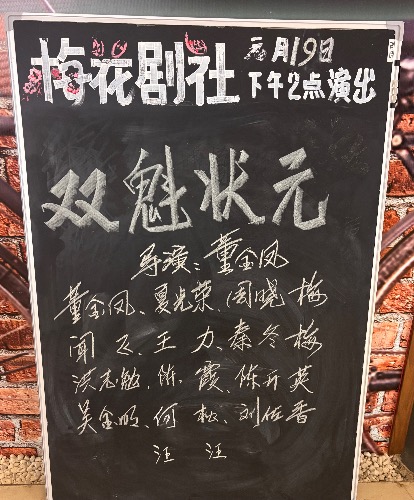 梅花剧社
元月19日
下午2点演出
双魁状元
导演：董金凤
董金凤、夏光荣、周晓梅
闻飞、王力、秦冬梅
洪志敏、陈霞、陈开英
吴金明、何松、刘佐香
汪汪